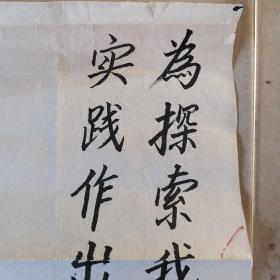 為探索我
实践作出